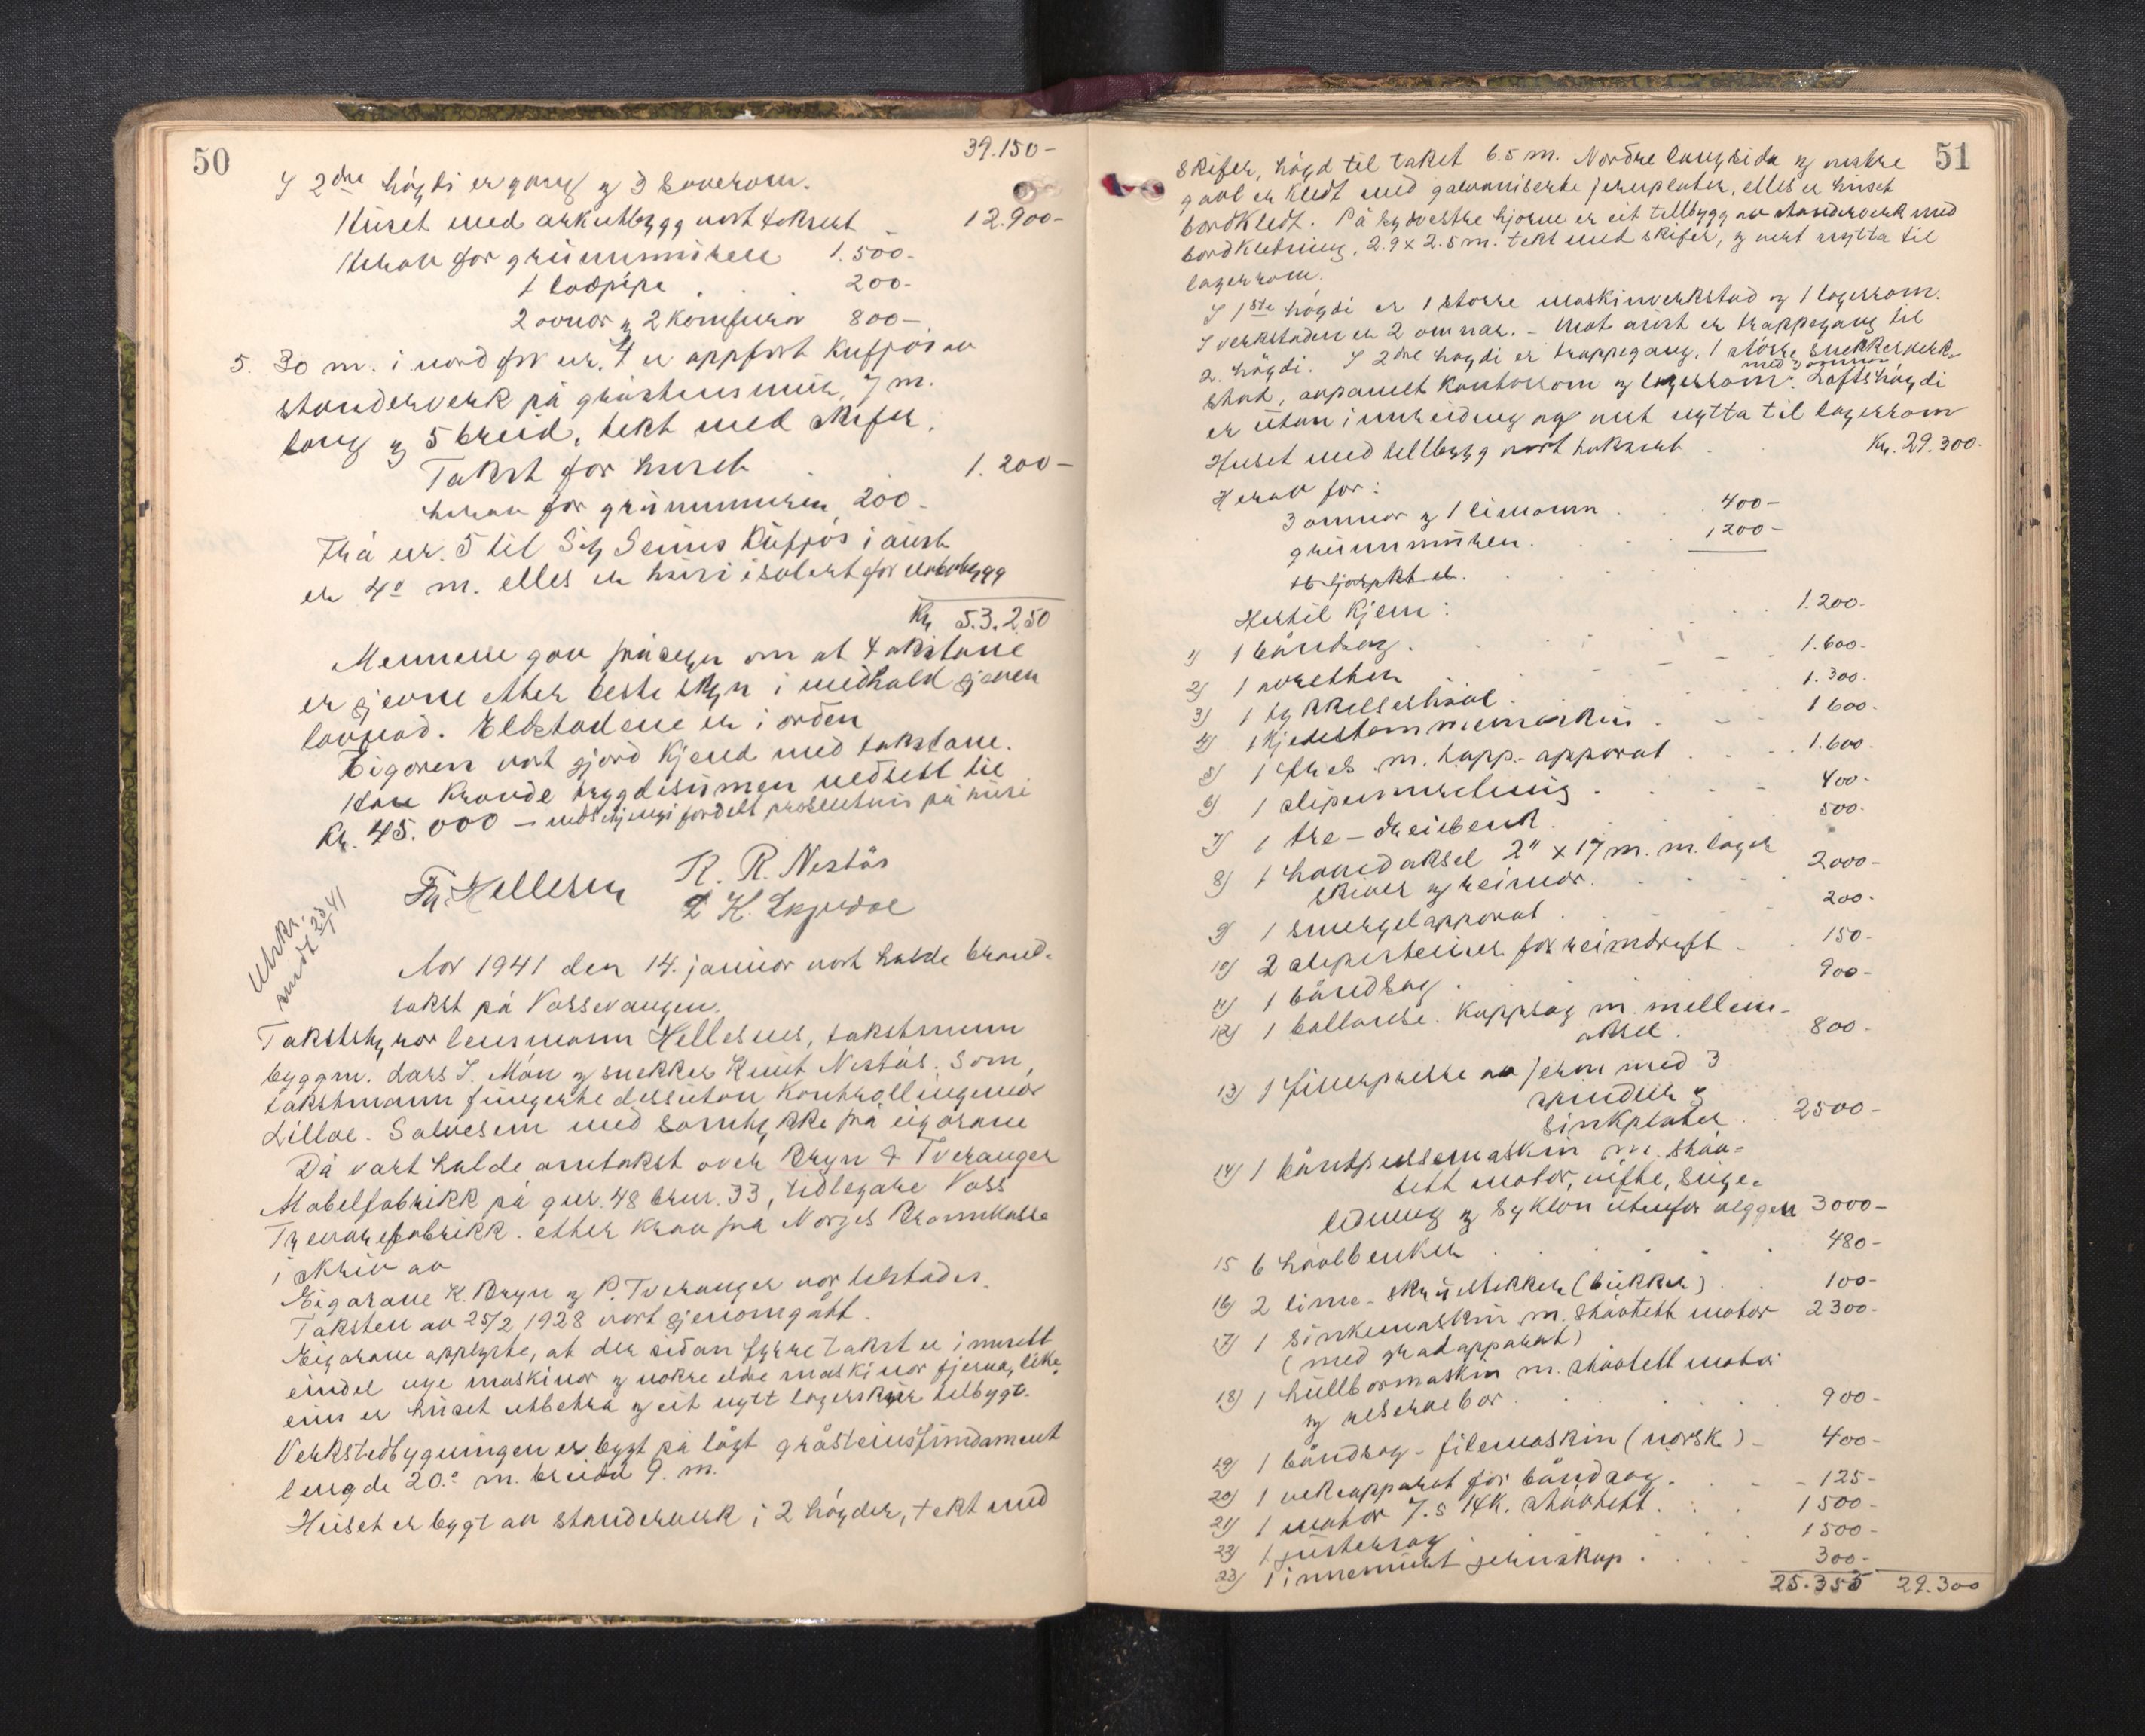 50
39.150-
I 2dre högdi er gang og 3 soverom.
Huset med arkutbygg vart taksert - 12.900-
Herav for grunnmuren 1.500-
1 ladpipe . . . 200-
2 ovnar og 2 komfurar 800-
5. 30 m. i nord for nr. 4 er oppfört kufjös av
standerverk på gråsteinsmur, 7 m.
lang og 5 breid, tekt med skifer.
Takst for huset . . 1.200-
herav for grunnmuren 200-
Frå nr. 5 til Seims kufjös i aust
er 40 m. elles er husi isolert for nabobygg
Kr. 53.250
Mennene gav fråsegn om at takstane
er gjevne etter beste skyn i medhald gjeven
lovnad. Eldstadene er i orden
Eigaren vart gjord kjend med takstane.
Han kravde trygdesumen nedsett til
Kr. 45.000 - nedskjeringi fordelt prosentvis på husi
Fr. Hellesen R. R. Nestås
L K. Skjerdal
Utskr.
sendt 23/1 41
Aar 1941 den 14. januar vart halde brand-
takst på Vossevangen.
Takststyrar lensmann Hellesnes, takstmenn
byggm. Lars I. Møn og snekker Knut Nestås. Som
takstmann fungerte dessutan kontrollingeniör
Lilloe. Salvesen med samtykke frå eigarane
Då vart halde omtakst over Bryn & Tveranger
Møbelfabrikk på gnr. 48 bnr. 33, tidlegare Voss
Trevarefabrikk. etter krav frå Norges Brannkasse
i skriv av
Eigarane K. Bryn og P. Tveranger var tilstades.
Taksten av 25/2 1928 vart gjenomgått.
Eigarane opplyste, at der sidan fyrre takst er innsett
eindel nye maskinor og nokre eldre maskinor fjerna, like
eins er huset utbetra og eit nytt lagerskur tilbygt.
Verkstedbygningen er bygt på lågt gråsteinsfundament
lengde 20.0 m. breidd 9. m.
Huset er bygt av standerverk i 2 högder, tekt med
51
skifer, högd til taket 6.5 m. Nordre langsida og vestre
gavl er kledt med galvaniserte jernplater, elles er huset
bordkledt. På sydvestre hjorne er eit tillbygg av standerverk med
bordkledning, 2.9 x 2.5 m. tekt med skifer, og vert nytta til
lagerrom.
I 1ste högdi er 1 större maskinverkstad og 1 lagerrom.
I verkstaden er 2 omnar. - Mot aust er trappegang til
2. högdi. I 2dre högdi er trappegang, 1 större snekkerverk-
med 3 omnar
stad, avpanelt kontorrom og lagerrom. Loftshögdi
er utan innreiding og vert nytta til lagerrom
Huset med tillbygg vart taksert . . Kr. 29.300.
Herav for:
3 omnar og 1 limomn . . 400-
grunnmuren. . . . 1200-
Hertil kjem:
1) 1 båndsag . . . 1.200-
2) 1 avretter . . . 1.600-
3) 1 tykkelseshövel . . . 1.300-
4) 1 kjedestemmemaskin . . . 1600-
5) 1 fres m. tapp-apparat . . . 1.600-
6) 1 slipeinnretning . . . 400-
7) 1 tre-dreiebenk . . . 500-
8) 1 hovedaksel 2" x 17 m. m. lager
skiver og reimar. . . . 2000-
9) 1 smergelapparat . . . 200-
10) 2 slipesteiner for reimdrift . . . 150-
11) 1 båndsag . . . 900-
12) 1 ballanse. kappsag m. mellem-
aksel . 800-
13) 1 finerpresse av jern med 3
spindler og
sinkplater . . 2500-
14) 1 båndpussemaskin m. støv-
tett motor, vifte, suge-
ledning og syklon utenfor veggen 3000-
15 6 høvlbenker . . . 480-
16) 2 lime-skrustikker (bukker) . . 100-
17) 1 sinkemaskin m. støvtett motor 2300-
(med gradapparat)
18) 1 hullbormaskin m. støvtett motor
og reservebor . . . 900-
19) 1 båndsag-filemaskin (norsk) . 400-
20) 1 vekeapparat for båndsag . . . 125-
21) 1 motor 7.5 HK. støvtett . . . 1500-
22) 1 justersag . . . 1500-
23) 1 innemurt jernskap . . . 300-
25.355 29.300